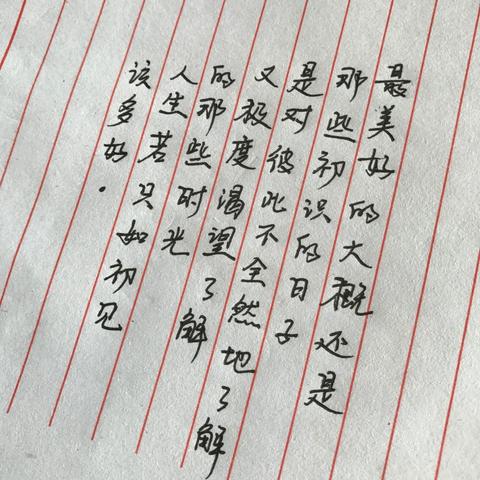 最美好的大概还是
那些初识的日子
是对彼此不全然地了解
又极度渴望了解
的那些时光
人生若只如初见
该多好.